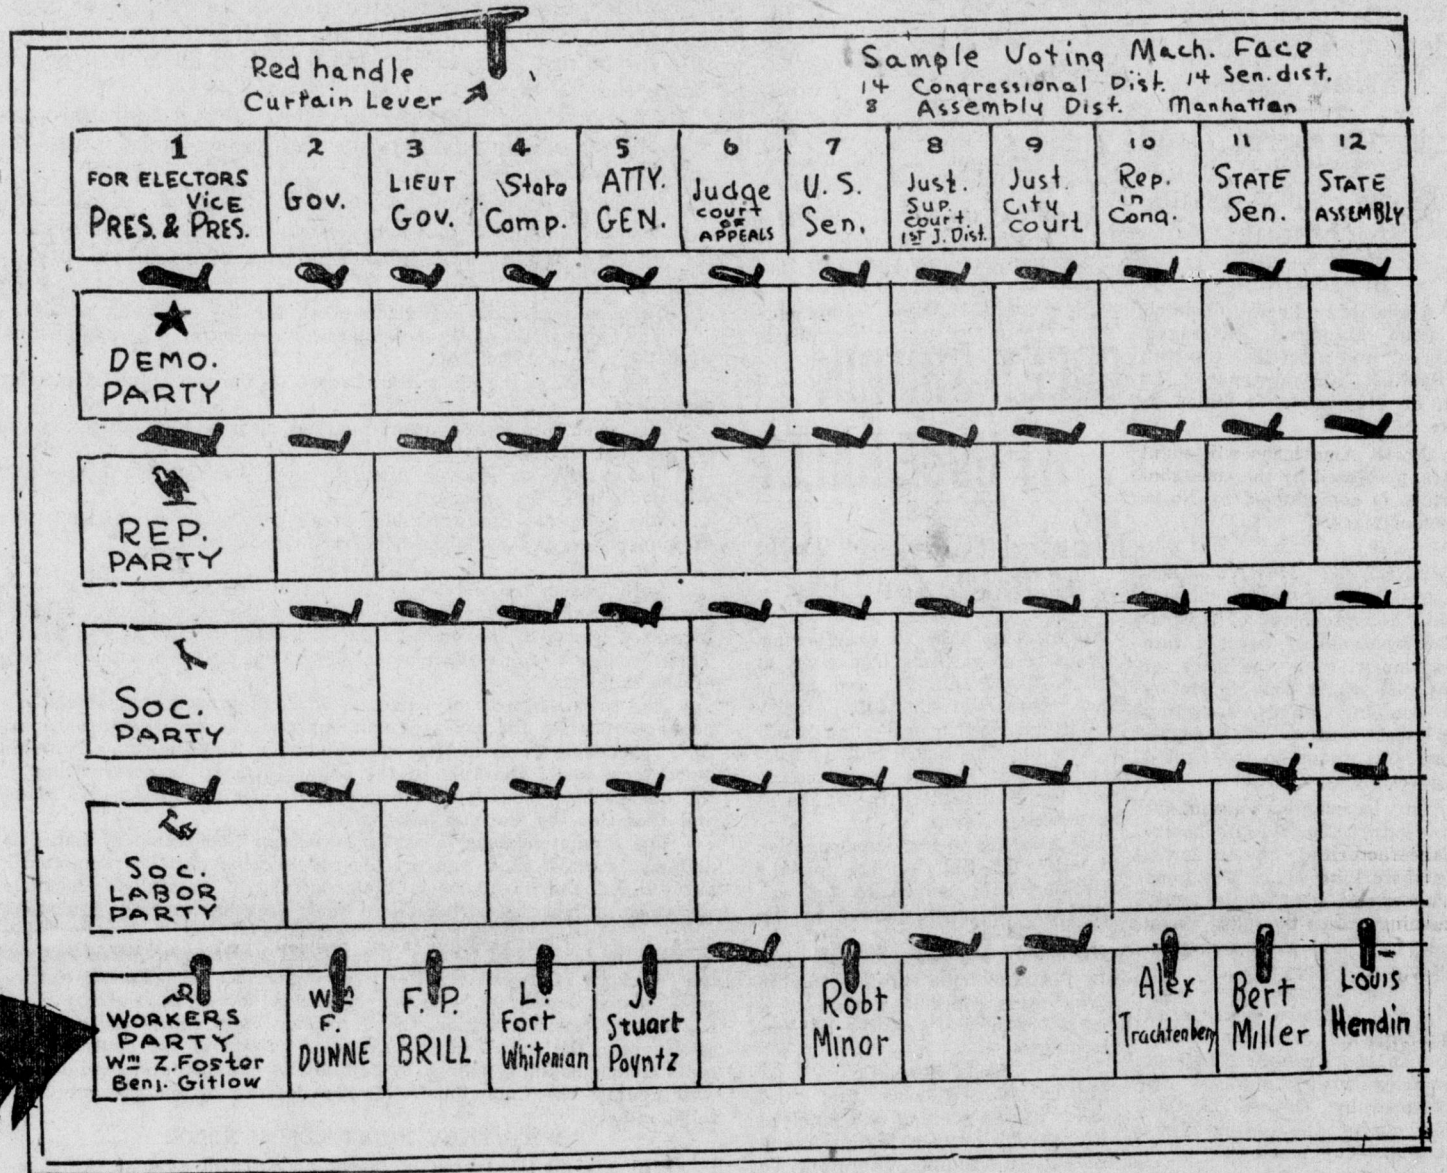 Red handle
Curtain Lever
Sample Voting Mach. Face
14 Congressional Dist. 14 Sen. dist.
8 Assembly Dist. Manhattan
1
FOR ELECTORS
VICE
PRES. & PRES.
2
Gov.
3
LIEUT
Gov.
4
State
Comp.
5
ATTY.
GEN.
6
Judge
court
OF
APPEALS
7
U. S.
Sen.
8
Just.
Sup.
court
1ST J. Dist.
9
Just.
City
court
10
Rep.
in
Cong.
11
STATE
Sen.
12
STATE
ASSEMBLY
DEMO.
PARTY
REP.
PARTY
SOC.
PARTY
SOC.
LABOR
PARTY
WORKERS
PARTY
Wm Z. Foster
Benj. Gitlow
Wm
F.
DUNNE
F. P.
BRILL
L.
Fort
Whiteman
J.
Stuart
Poyntz
Robt
Minor
Alex
Trachtenberg
Bert
Miller
Louis
Hendin